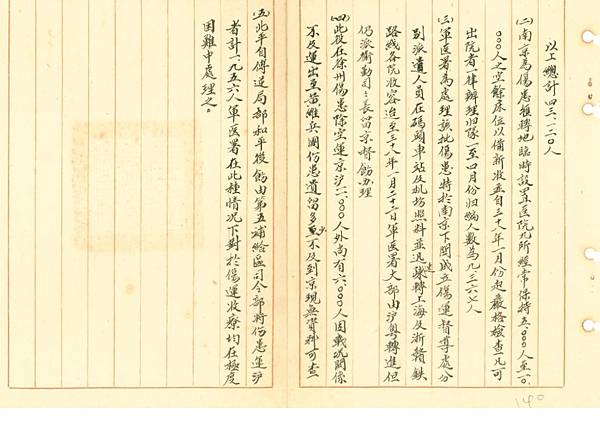 以上總計四三、一二〇人
(二)南京為傷患獲轉地臨時設置医院九所經常保持五、〇〇〇人至一〇、
〇〇〇人之空餘床位以備新收並自三十八年一月份起嚴格檢查凡可
出院者一律辦理归隊一至四月份归編人數為九三六七人
(三)軍医署為處理該批傷患特於南京下関成立傷運督導處分
別派遣人員在碼頭車站及机坊照料並迅速疎轉上海及浙贛鉄
路綫各院收容迨至三十八年一月二十二日軍医署大部由沪粤轉進但
仍派衛勤司司長留京督飭办理
(四)此役在徐州傷患除空運京沪二、〇〇〇人外尚有六、〇〇〇人因戰况関係
不及運出至黄維兵團份患遺留多少不及到京現無資料可查
(五)北平自傅逆局部和平後飭由第五補給區司令部將伤患運沪
者計一、九五六人軍医署在此種情况下對於傷運收療均在極度
困難中處理之。
140